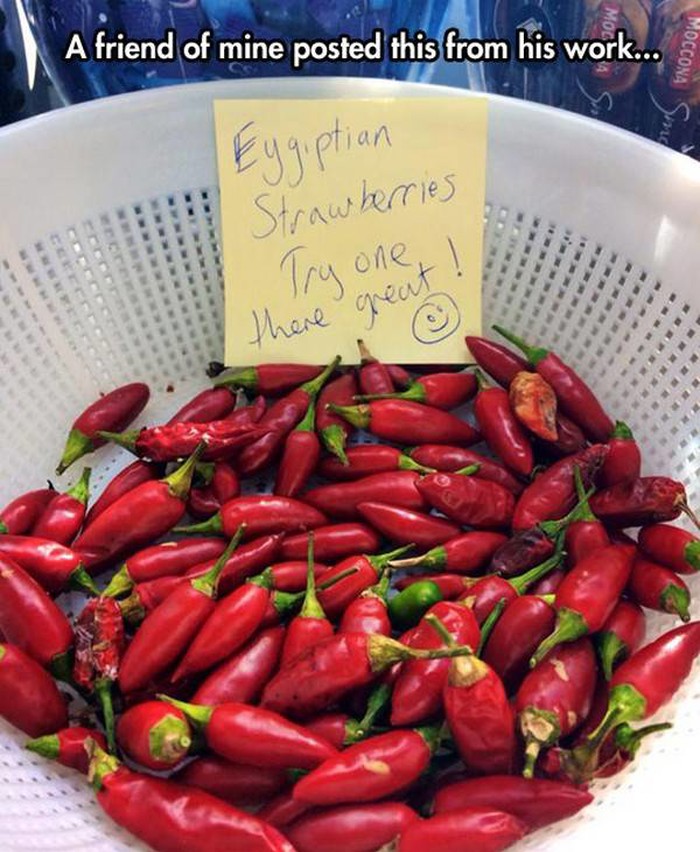 A friend of mine posted this from his work...
MOCCONA
MOCCONA
Eygiptian
Strawberries
Try one
there great !